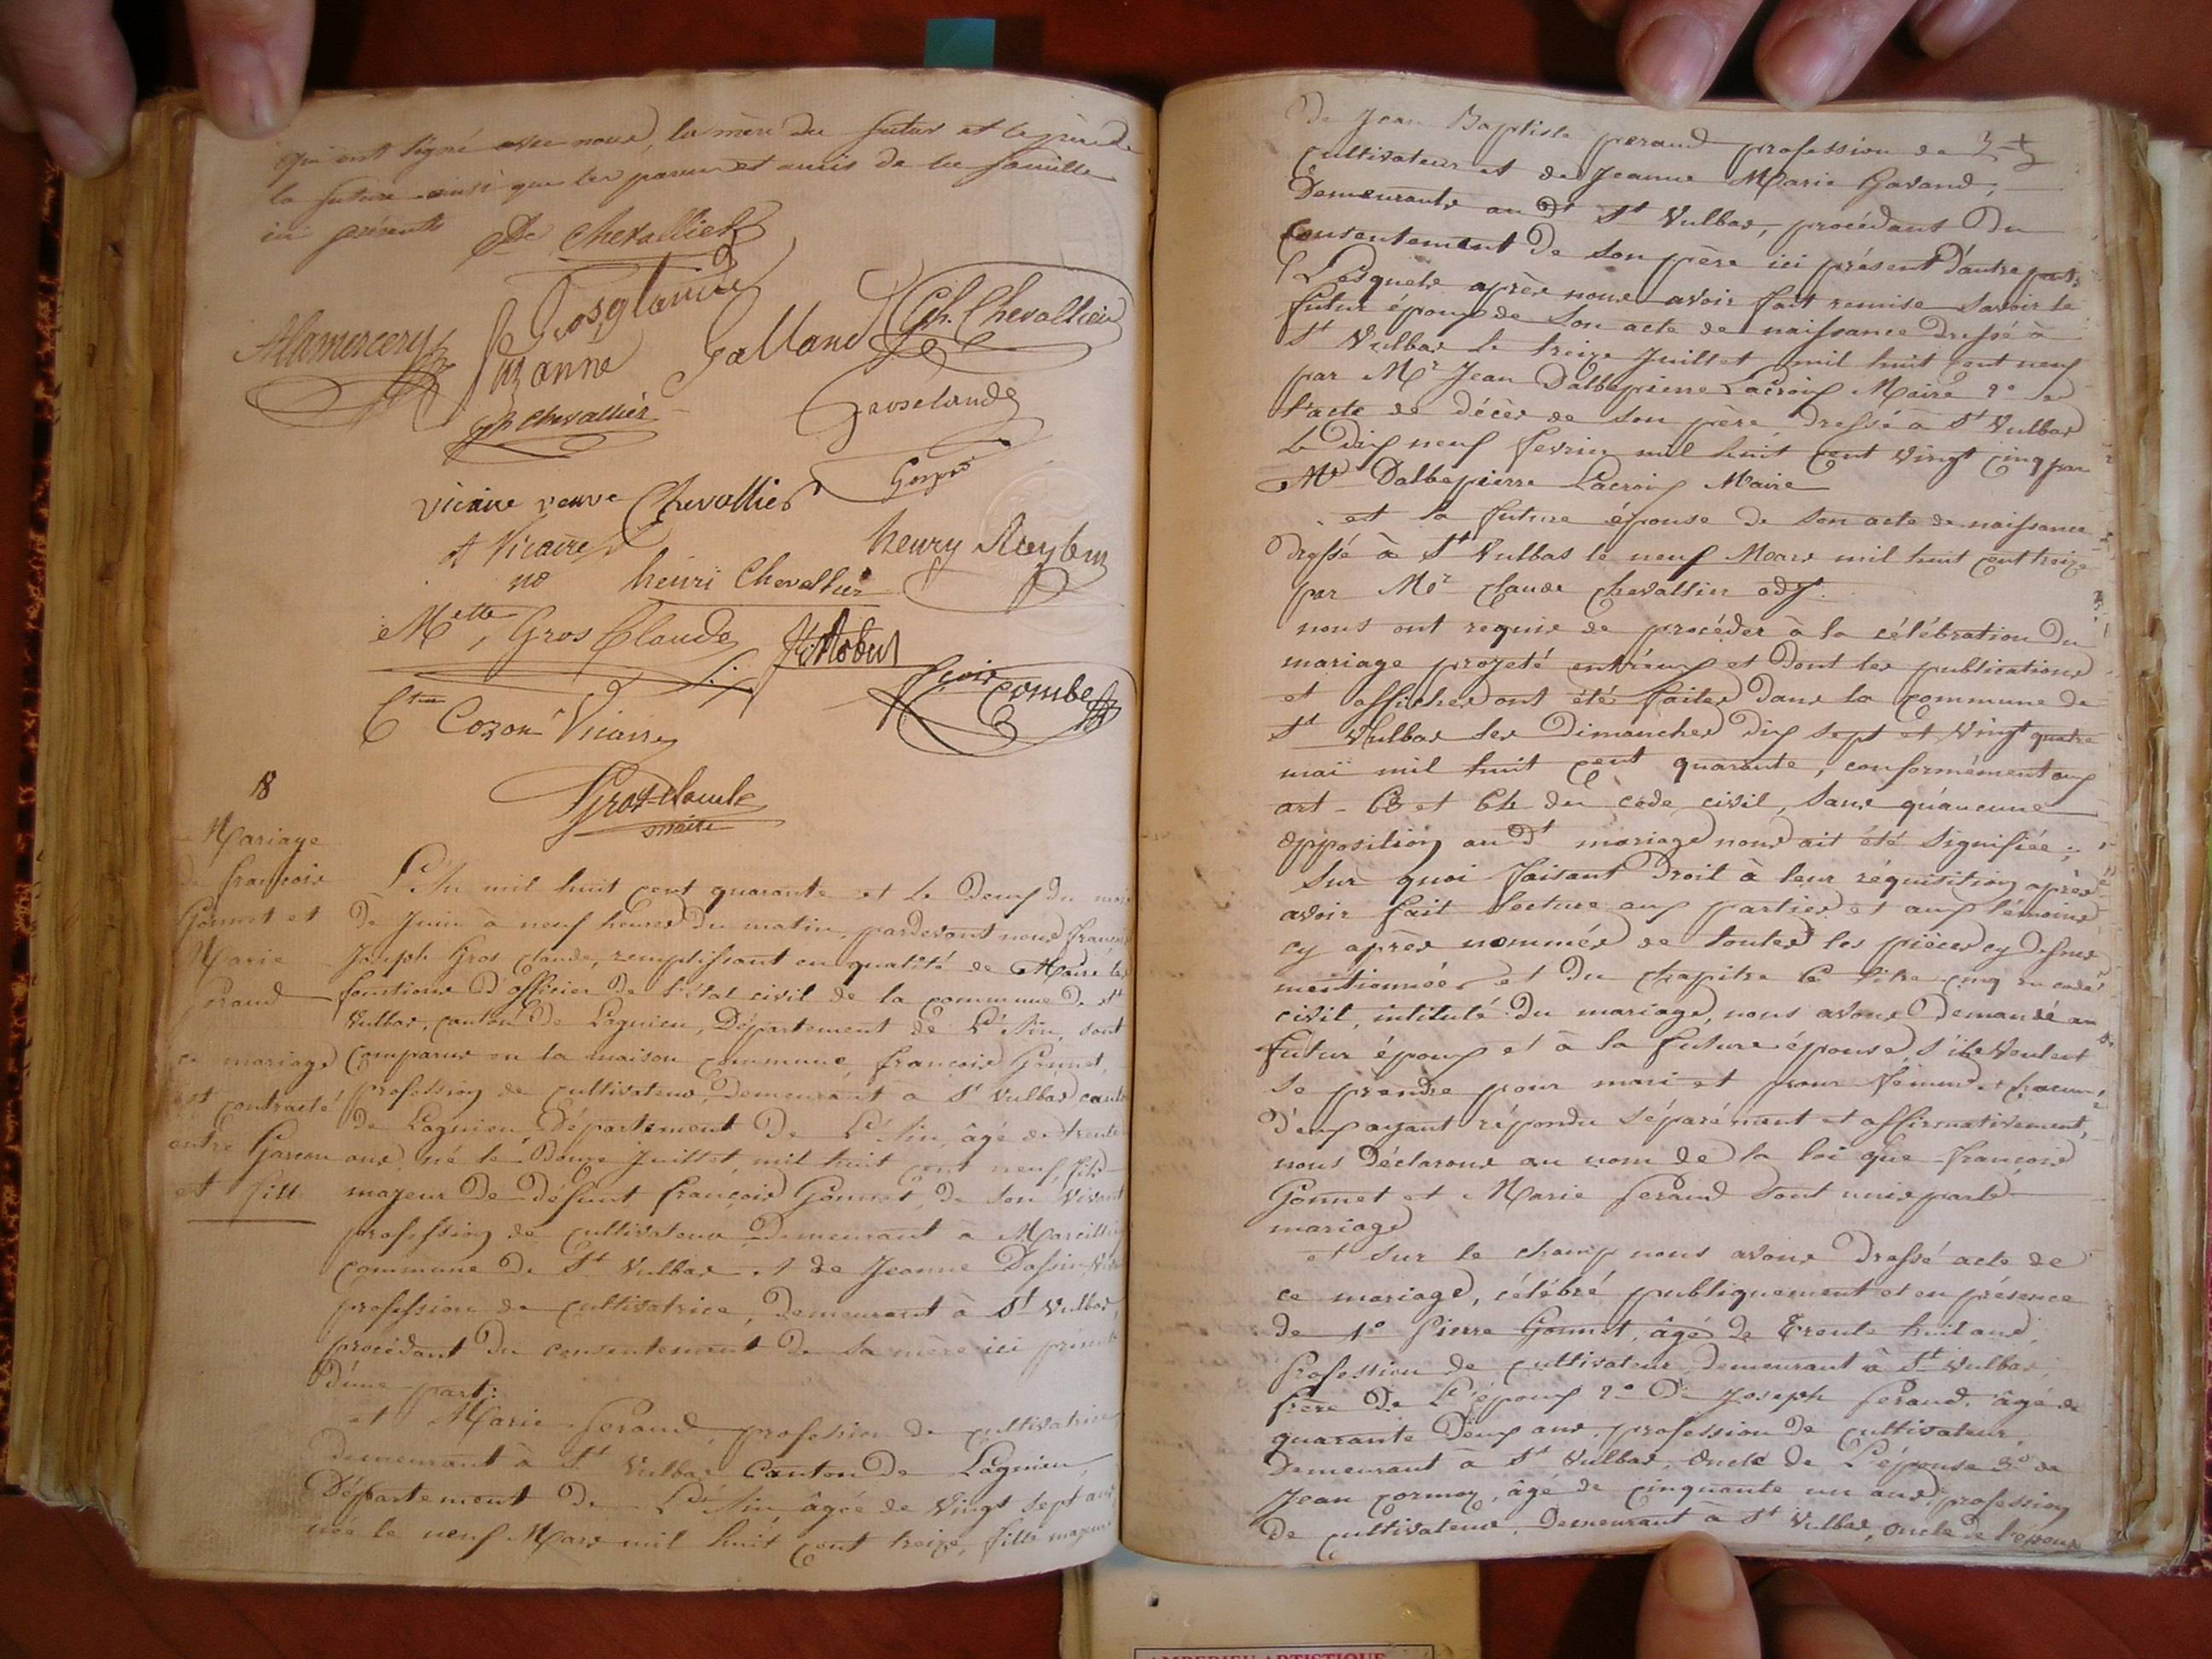 qui ont signé avec nous, la mère du futur et le père de
la future ainsi que les parens et amis de la famille
ici présents
De Chevallier
Grosglaude
Alamercery
Suzanne Galland Ch. Chevallier
Chevallier
Grosclaude
vicaire veuve Chevallier
A Vicaire
henry
no henri Chevallier
Mette Gros Claude
Combe
Cozon Vicaire
Gros-claude
maire
18
Mariage
de françois
Gonnet et
Marie
peraud
ce mariage
est contracté
entre Garcon
et fille
L'An mil huit cent quarante et le Deux du mois
de Juin à neuf heures du matin, pardevant nous françois
Joseph Gros claude, remplissant en qualité de Maire les
fonctions d'officier de l'état civil de la commune de St
Vulbas, canton de Lagnieu, Département de L'Ain, sont
comparus en la maison commune, françois Gonnet,
profession de cultivateur, demeurant à St Vulbas canton
de Lagnieu, Département de L'Ain, âgé de trente
ans, né le Douze Juillet, mil huit cent neuf, fils
majeur de défunt françois Gonnet, de son vivant
profession de cultivateur, demeurant à Marcillieu
commune de St Vulbas et de Jeanne
profession de cultivatrice, demeurant à St Vulbas,
procédant du consentement de sa mère ici présente
D'une part:
et Marie peraud, profession de cultivatrice
demeurant à St Vulbas Canton de Lagnieu,
Département de L'Ain, âgée de vingt sept ans
née le neuf Mars mil huit cent treize, fille majeure
de Jean Baptiste peraud profession de
cultivateur et de Jeanne Marie Gavand,
Demeurants au dt St Vulbas, procédant du
consentement de son père ici présent d'autre part;
Lesquels après nous avoir fait remise savoir le
futur époux de son acte de naissance dressé à
St Vulbas le treize Juillet mil huit cent neuf
par Mr Jean Dalbepierre Lacroix Maire 2° de
l'acte de décès de son père dressé à St Vulbas
le Dix neuf fevrier mil huit cent vingt cinq par
Mr Dalbepierre Lacroix Maire
et la future épouse de son acte de naissance
dressé à St Vulbas le neuf Mars mil huit cent treize
par Mr claude chevallier adjt.
nous ont requis de procéder à la célébration du
mariage projeté entr'eux et dont les publications
et affiches ont été faites dans la commune de
St Vulbas les Dimanches dix sept et vingt quatre
mai mil huit cent quarante, conformément aux
art - 63 et 64 du code civil, sans qu'aucune
opposition au dt mariage nous ait été signifiée;
Sur quoi faisant Droit à leur réquisition après
avoir fait lecture aux parties et aux témoins
cy après nommés de toutes les pièces cy dessus
mentionnées et du chapitre 6 titre cinq du code
civil, intitulé du mariage, nous avons demandé au
futur époux et à la future épouse, s'ils veulent
se prendre pour mari et pour femme, chacun
d'eux ayant répondu séparément et affirmativement,
nous déclarons au nom de la loi que françois
Gonnet et Marie peraud sont unis par le
mariage
et sur le champ nous avons dressé acte de
ce mariage, célébré publiquement et en présence
de 1° Pierre Gonnet, âgé de Trente huit ans,
profession de cultivateur, demeurant à St Vulbas,
frère de l'époux 2° De Joseph peraud, âgé de
quarante Deux ans, profession de cultivateur,
Demeurant à St Vulbas, Oncle de L'épouse 3° de
Jean cormoz, âgé de cinquante un ans, profession
de cultivateur, Demeurant à St Vulbas, Oncle de l'époux
AMBERIEU ARTISTIQUE